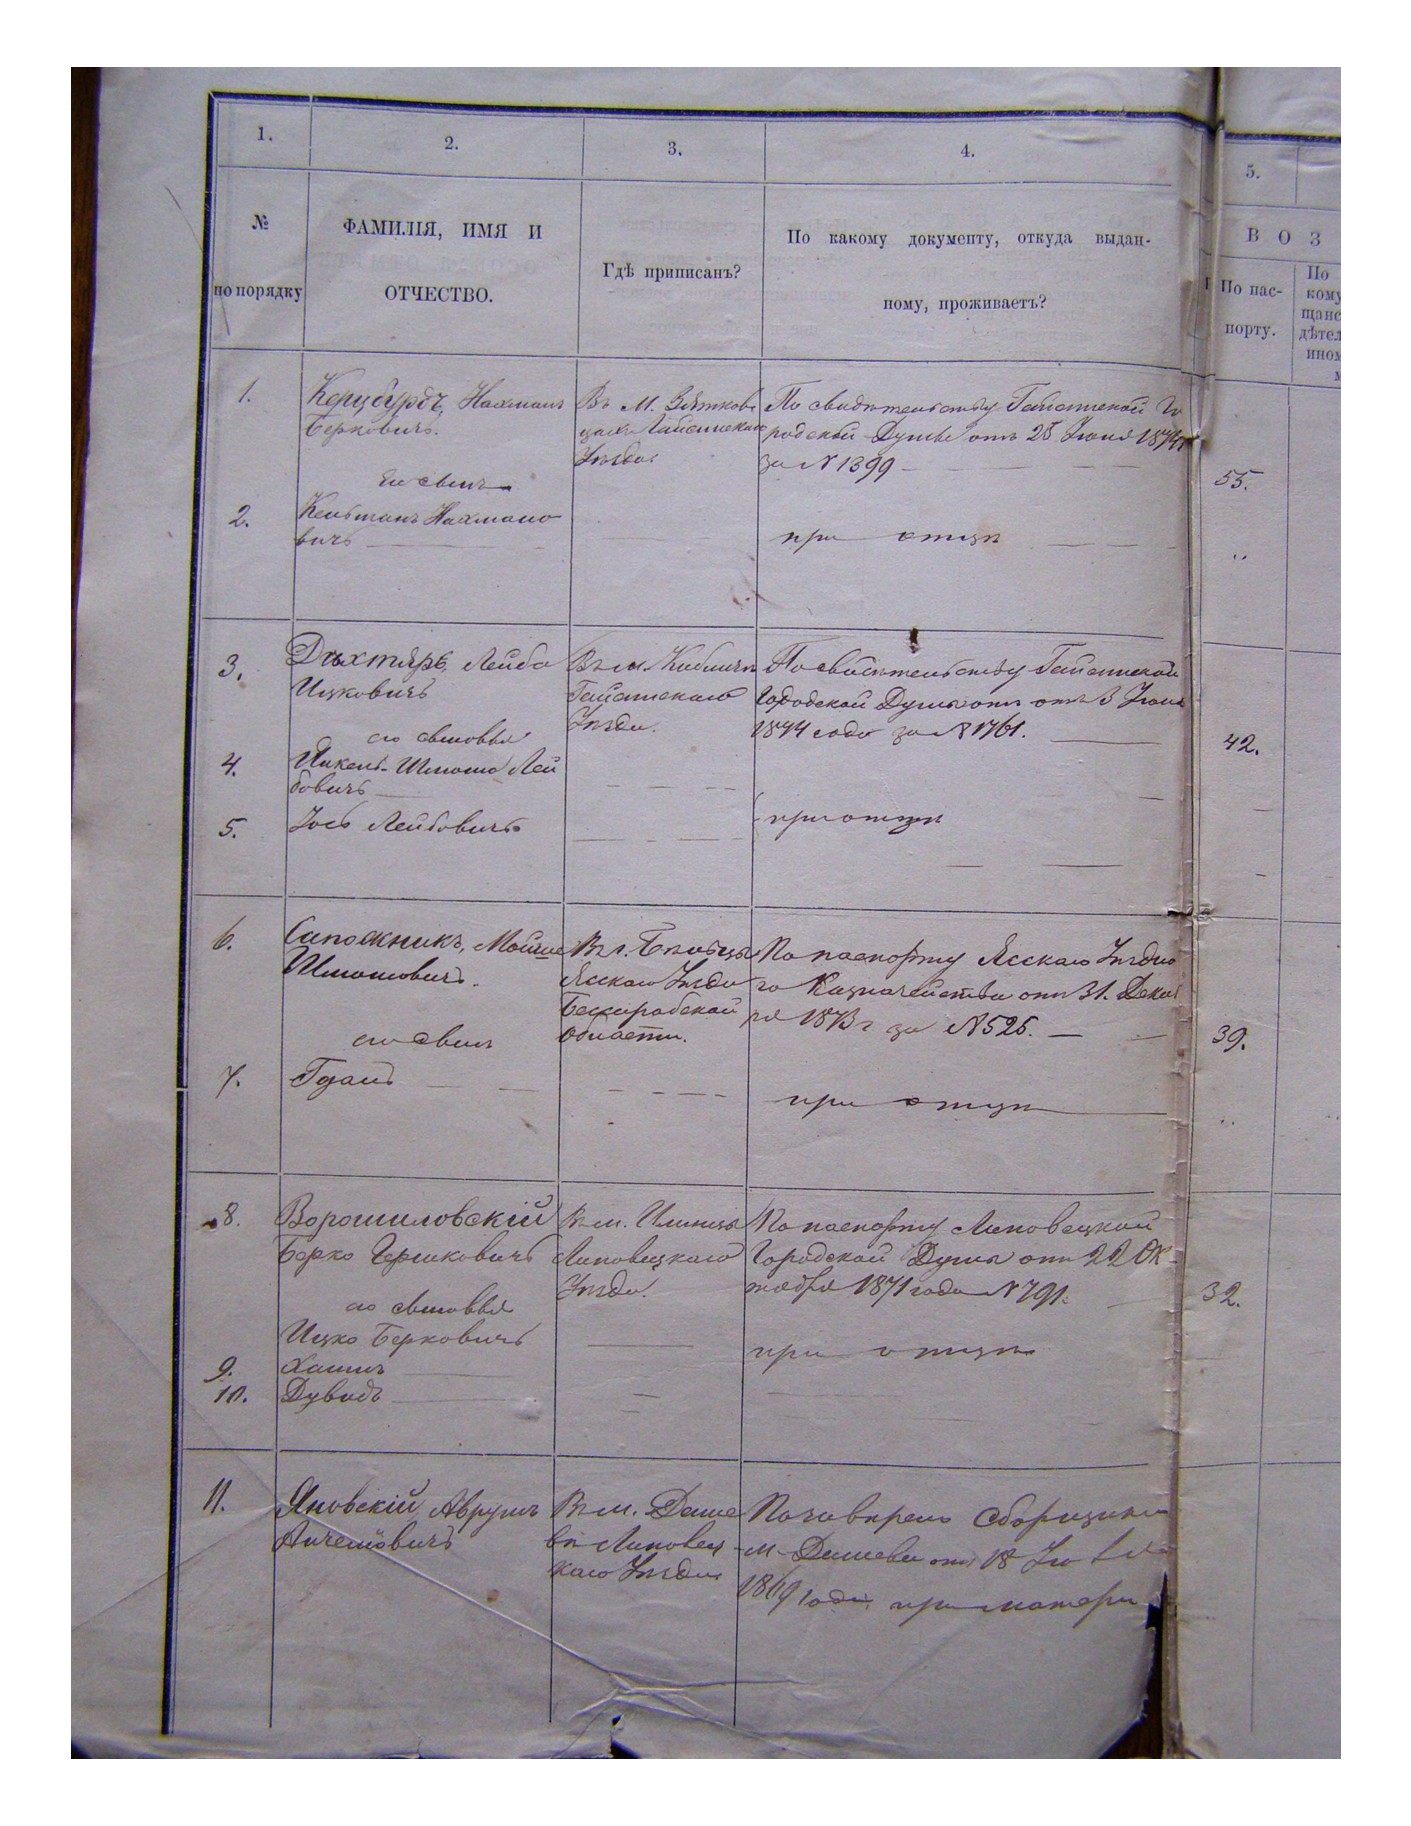 1.
2.
3.
4.
5.
№
по порядку
ФАМИЛІЯ, ИМЯ И
ОТЧЕСТВО.
Гдѣ приписанъ?
По какому документу, откуда выдан-
ному, проживаетъ?
ВОЗ
По пас-
порту.
По
кому
щанс
дѣтел
ином
1.
Нахманъ
Берковичъ.
Въ м.
Уѣзда.
По свидѣтельству Гайсинской Го
родской Думы отъ 25 Іюня 1874
за № 1399
55.
его сынъ
2.
Нахмано
вичъ
при отцѣ
3.
Дѣхтярь, Лейба
Ицковичъ
Въ м. Кубличѣ
Гайсинскаго
Уѣзда.
По свидѣтельству Гайсинской
Городской Думы отъ 3 Іюня
1874 года за № 1761.
42.
его сыновья
4.
Янкель-Шлиома Лей
бовичъ
5.
Іось Лейбовичъ
при отцѣ
6.
Сапожникъ, Мойше
Шлиомовичъ.
В г. Бѣльцы
Ясскаго Уѣзда
Бессарабской
Области.
По паспорту Ясскаго Уѣздна
го Казначейства отъ 31. Декаб
ря 1873 г за № 526.
39.
его сынъ
7.
при отцѣ
8.
Ворошиловскій
Берко Гершковичъ
Въ м. Илинцы
Липовецкаго
Уѣзда.
По паспорту Липовецкой
Городской Думы отъ 22 Ок-
тября 1871 года № 791.
32.
его сыновья
Ицко Берковичъ
при отцѣ
9.
Хаимъ
10.
Дувидъ
11.
Яновскій Аврумъ
Въ м. Даше
вѣ Липовец-
каго Уѣзда
Сборщика
м. Дашева отъ 18
1869 года, при матери